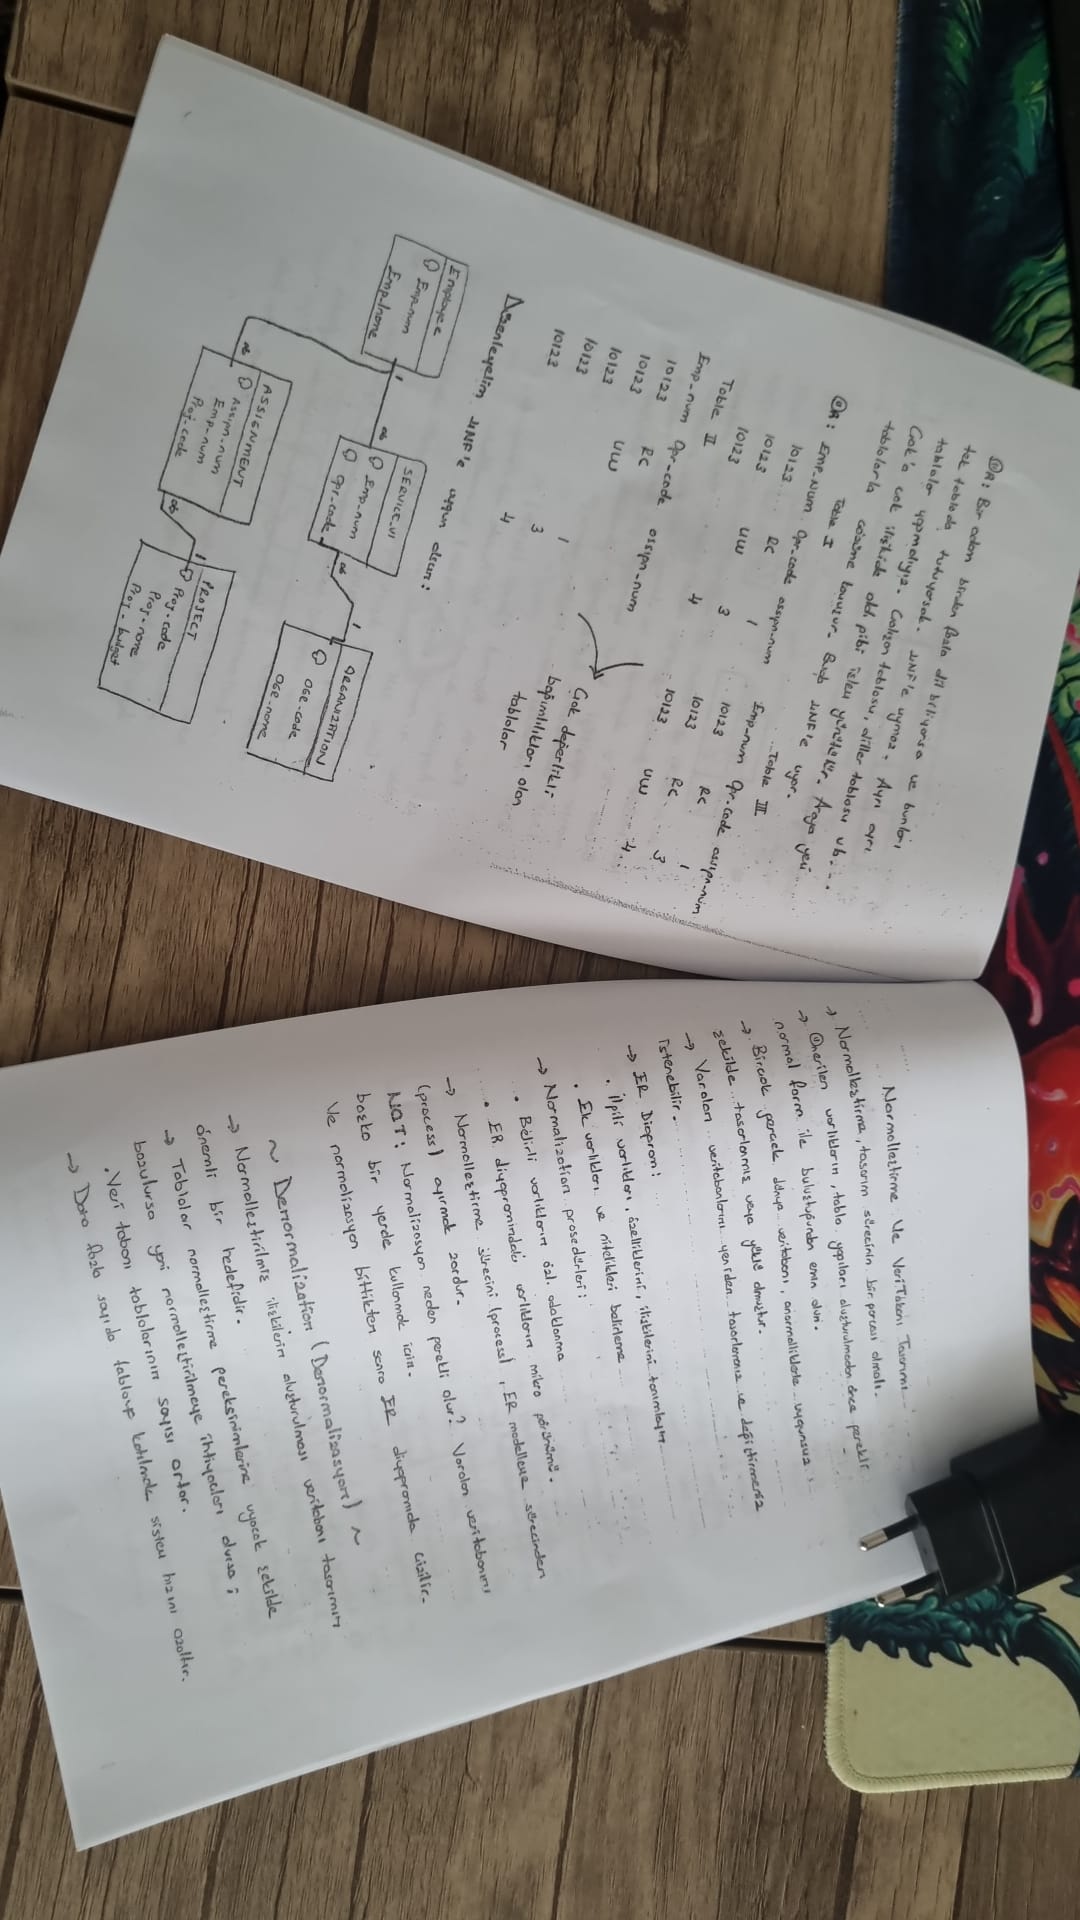 ÖR: Bir adam birden fazla dil biliyorsa ve bunları
tek tabloda tutuyorsak. 4NF'e uymaz. Ayrı ayrı
tablolar yapmalıyız. Çalışan tablosu, diller tablosu vb...
Çok'a çok ilişkide old. gibi işlem yürütülür. Araya yeni
tablolarla çözüme kavuşur. Buda 4NF'e uyar.
ÖR: Emp_Num Qr-code assign-num
Table I
10123 RC 1
10123 UW 3
10123 4
Table II
Emp-num Qr-code assign-num
10123 RC
10123 UW
10123 1
10123 3
10123 4
Table III
Emp-num Qr-code assign-num
10123 RC 1
10123 RC 3
10123 UW 4
Çok değerlikli
bağımlılıkları olan
tablolar
Düzenleyelim 4NF'e uygun olsun:
Employee
Emp-num
Emp-name
1
∞
SERVICE_V1
Emp-num
Qr-code
∞
1
ORGANIZATION
OGE-code
OGE-name
∞
ASSIGNMENT
Assign-num
Emp-num
Proj-code
∞
1
PROJECT
Proj-code
Proj-name
Proj-budget
Normalleştirme Ve VeriTabanı Tasarımı
→ Normalleştirme, tasarım sürecinin bir parçası olmalı.
→ Önerilen varlıkların, tablo yapıları oluşturulmadan önce gerekli
normal form ile buluştuğundan emin olun.
→ Birçok gerçek dünya veritabanı, anormalliklerle uygunsuz
şekilde tasarlanmış veya yüklü olmuştur.
→ Varolan veritabanlarını yeniden tasarlamanız ve değiştirmeniz
istenebilir.
→ ER Diagram:
• İlgili varlıkları, özelliklerini, ilişkilerini tanımlayın
• Ek varlıkları ve nitelikleri belirleme
→ Normalization prosedürleri:
• Belirli varlıkların özl. odaklanma
• ER diyagramındaki varlıkların mikro görünümü.
→ Normalleştirme sürecini (process), ER modelleme sürecinden
(process) ayırmak zordur.
NOT: Normalizasyon neden gerekli olur? Varolan veritabanını
başka bir yerde kullanmak için.
Ve normalizasyon bittikten sonra ER diyagramıda çizilir.
~ Denormalization (Denormalizasyon) ~
→ Normalleştirilmiş ilişkilerin oluşturulması veritabanı tasarımının
önemli bir hedefidir.
→ Tablolar normalleştirme gereksinimlerine uyacak şekilde
bozulursa yani normalleştirilmeye ihtiyaçları olursa;
• Veri tabanı tablolarının sayısı artar.
→ Daha fazla sayıda tabloya katılmak sistem hızını azaltır.